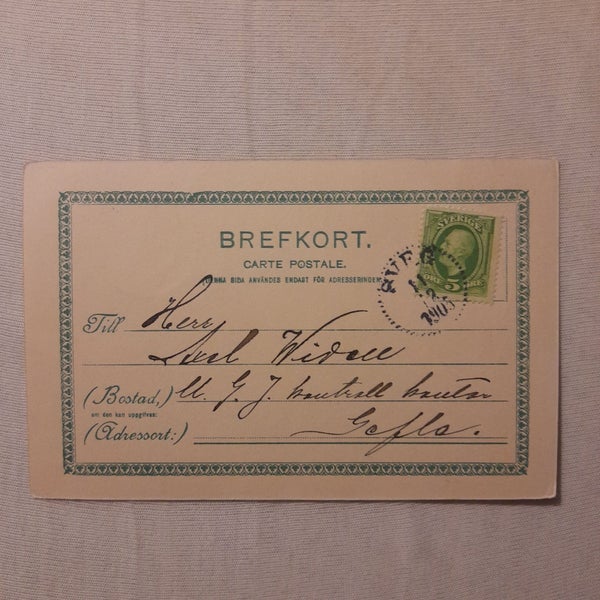 BREFKORT.
CARTE POSTALE.
DENNA SIDA ANVÄNDES ENDAST FÖR ADRESSERINGEN.
SVERIGE
ÖRE 5 ÖRE
SVEG
1905
Till Herr
Axel Widell
(Bostad, U. G. J. kontroll kontor
om den kan uppgifvas:
(Adressort:) Gefle.